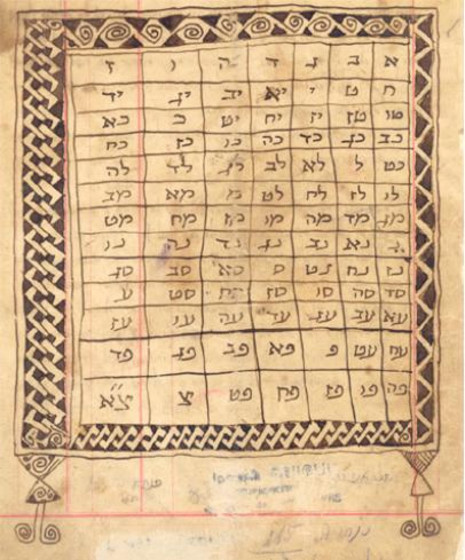 א ב ג ד ה ו ז
ח ט י יא יב יג יד
טו טז יז יח יט כ כא
כב כג כד כה כו כז כח
כט ל לא לב לג לד לה
לו לז לח לט מ מא מב
מג מד מה מו מז מח מט
נ נא נב נג נד נה נו
נז נח נט ס סא סב סג
סד סה סו סז סח סט ע
עא עב עג עד עה עו עז
עח עט פ פא פב פג פד
פה פו פז פח פט צ צ״א